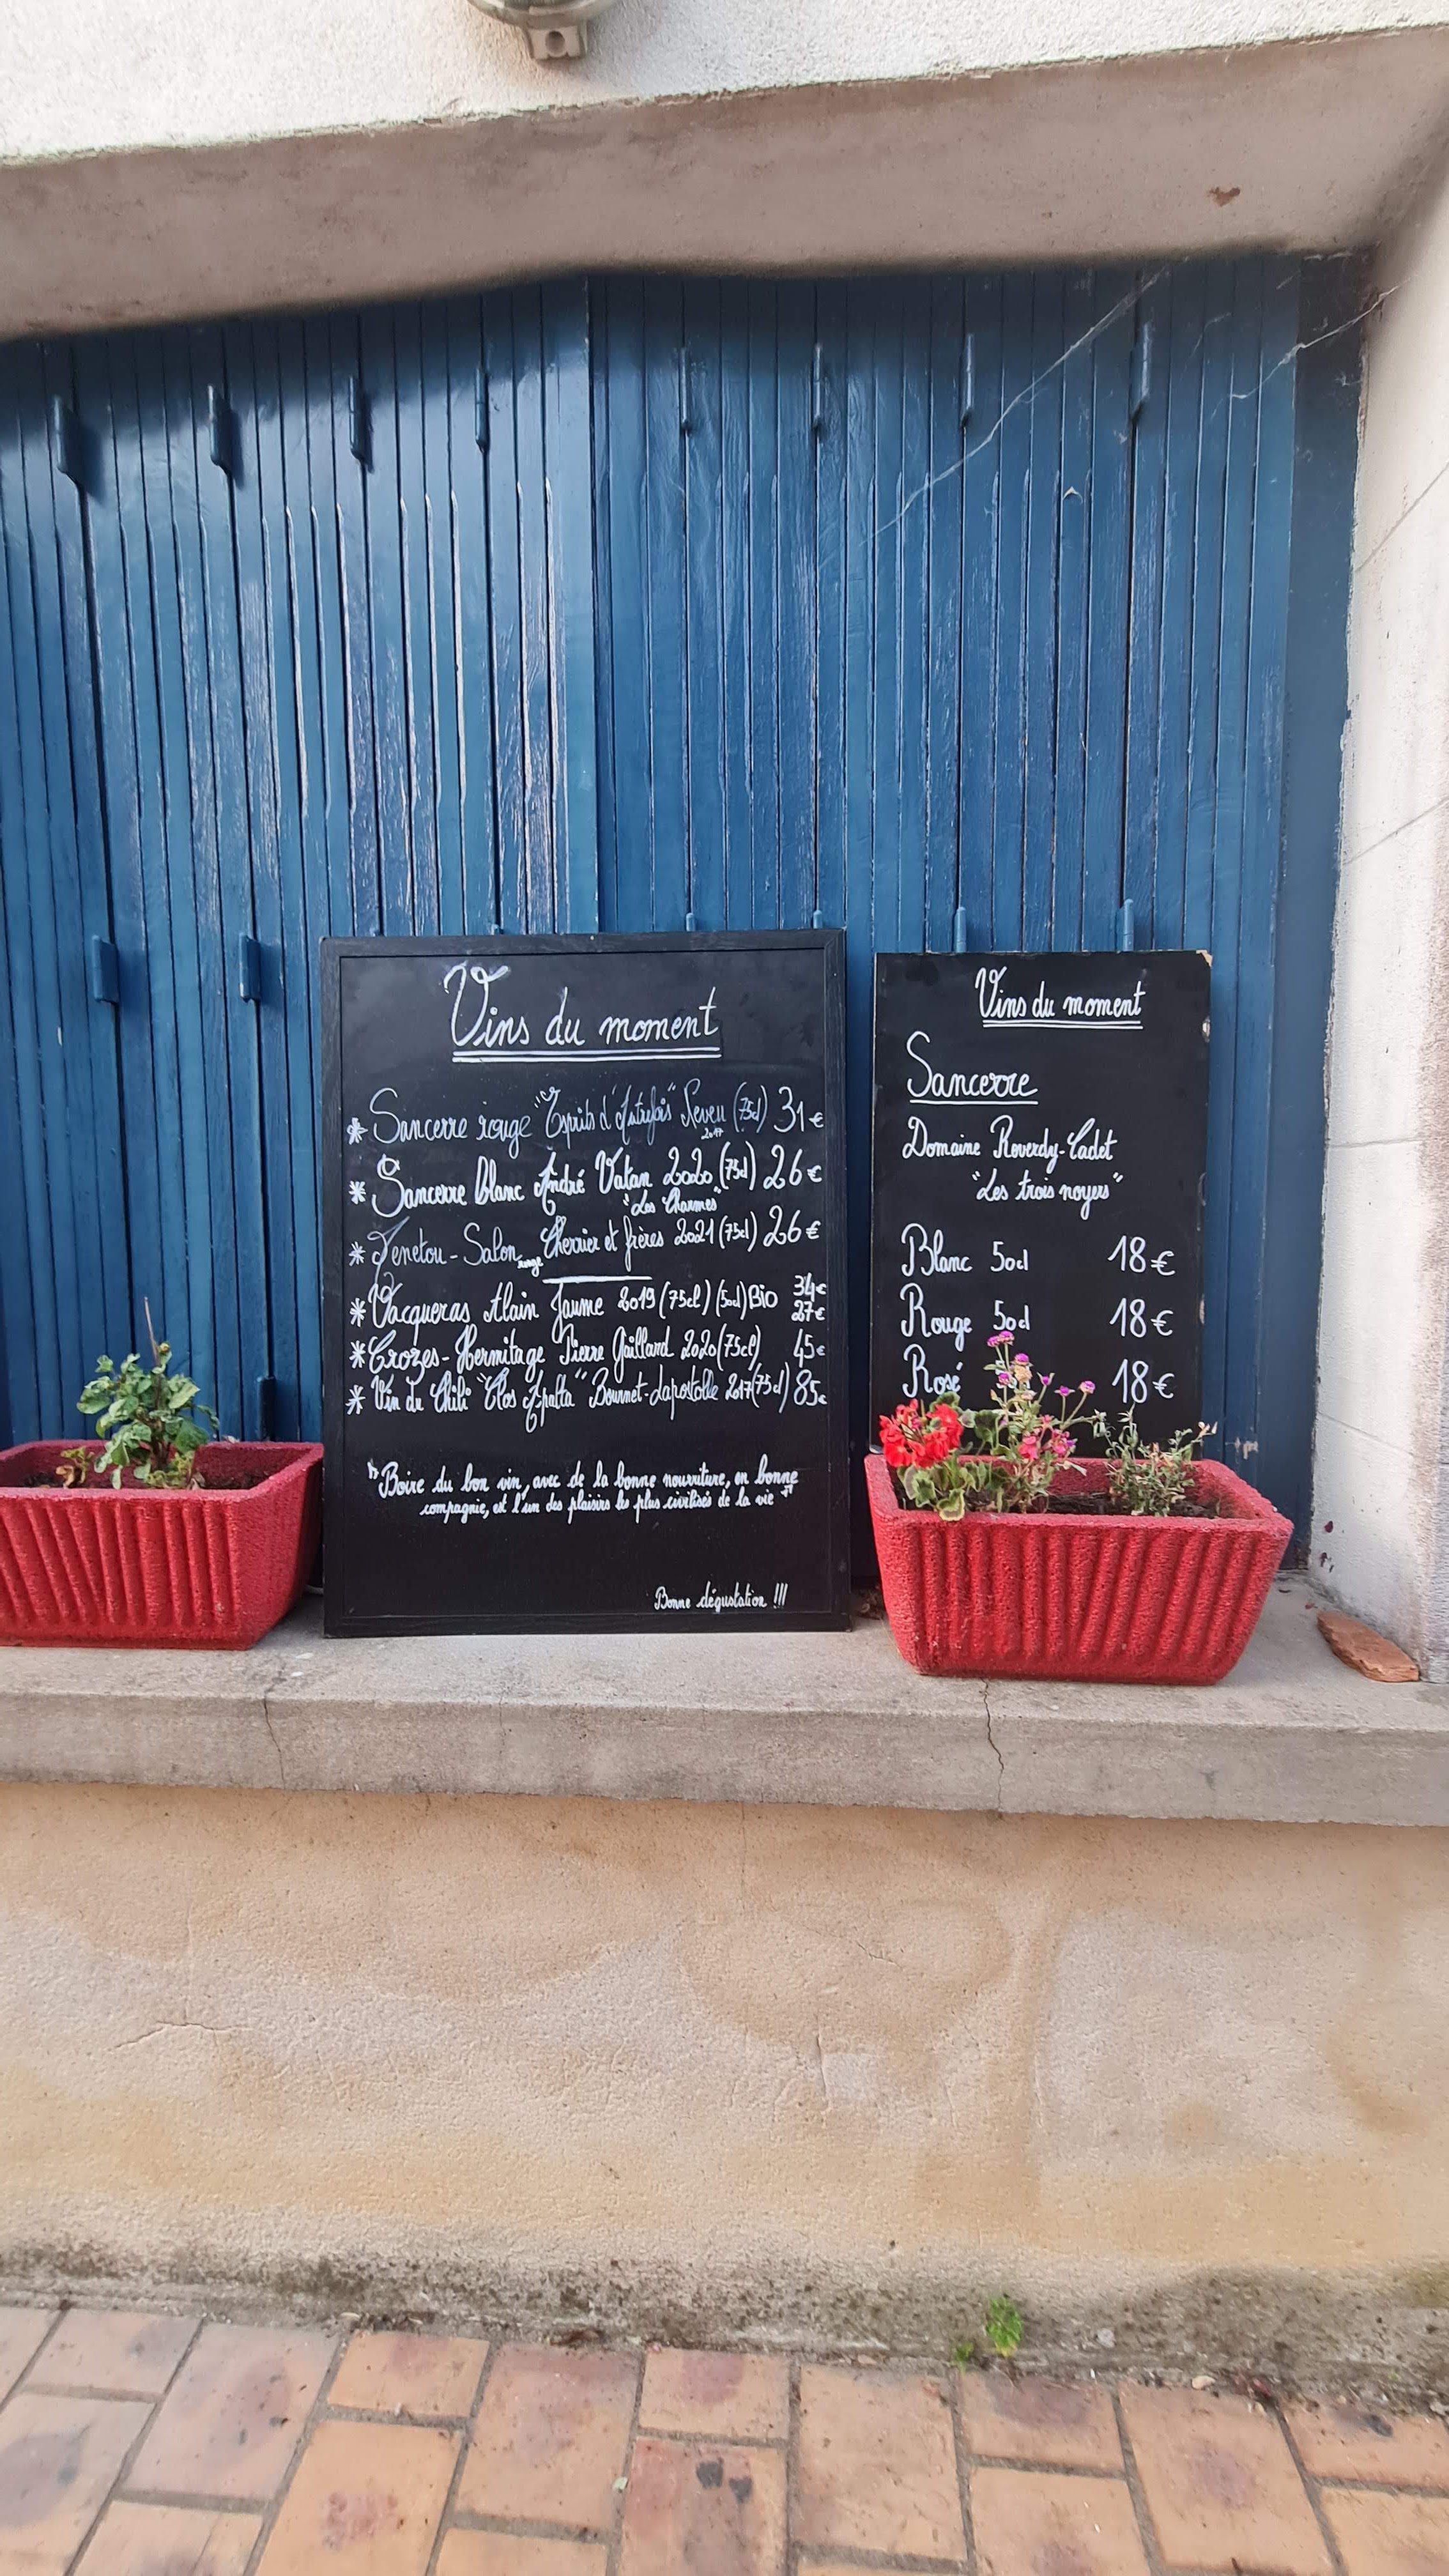 Vins du moment
* Sancerre rouge "Esprits d'Autrefois" Neveu (75cl) 31€
2017
* Sancerre blanc André Vatan 2020 (75cl) 26€
"Les Charmes"
* Menetou-Salon rouge Cherrier et frères 2021 (75cl) 26€
* Vacqueras Alain Jaume 2019 (75cl) (50cl) Bio 34€
27€
* Crozes-Hermitage Pierre Gaillard 2020 (75cl) 45€
* Vin du Chili "Clos Apalta" Bournet-Lapostolle 2017 (75cl) 85€
"Boire du bon vin, avec de la bonne nourriture, en bonne
compagnie, est l'un des plaisirs les plus civilisés de la vie"
Bonne dégustation !!!
Vins du moment
Sancerre
Domaine Roverdy-Cadet
"Les trois noyers"
Blanc 50cl 18€
Rouge 50cl 18€
Rosé 18€